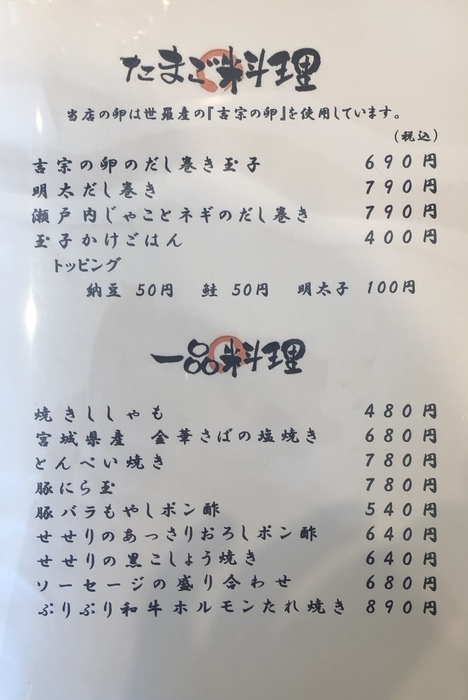 たまご料理
当店の卵は世羅産の『吉宗の卵』を使用しています。
(税込)
吉宗の卵のだし巻き玉子 690円
明太だし巻き 790円
瀬戸内じゃことネギのだし巻き 790円
玉子かけごはん 400円
トッピング
納豆 50円 鮭 50円 明太子 100円
一品料理
焼きししゃも 480円
宮城県産 金華さばの塩焼き 680円
とんぺい焼き 780円
豚にら玉 780円
豚バラもやしポン酢 540円
せせりのあっさりおろしポン酢 640円
せせりの黒こしょう焼き 640円
ソーセージの盛り合わせ 680円
ぷりぷり和牛ホルモンたれ焼き 890円